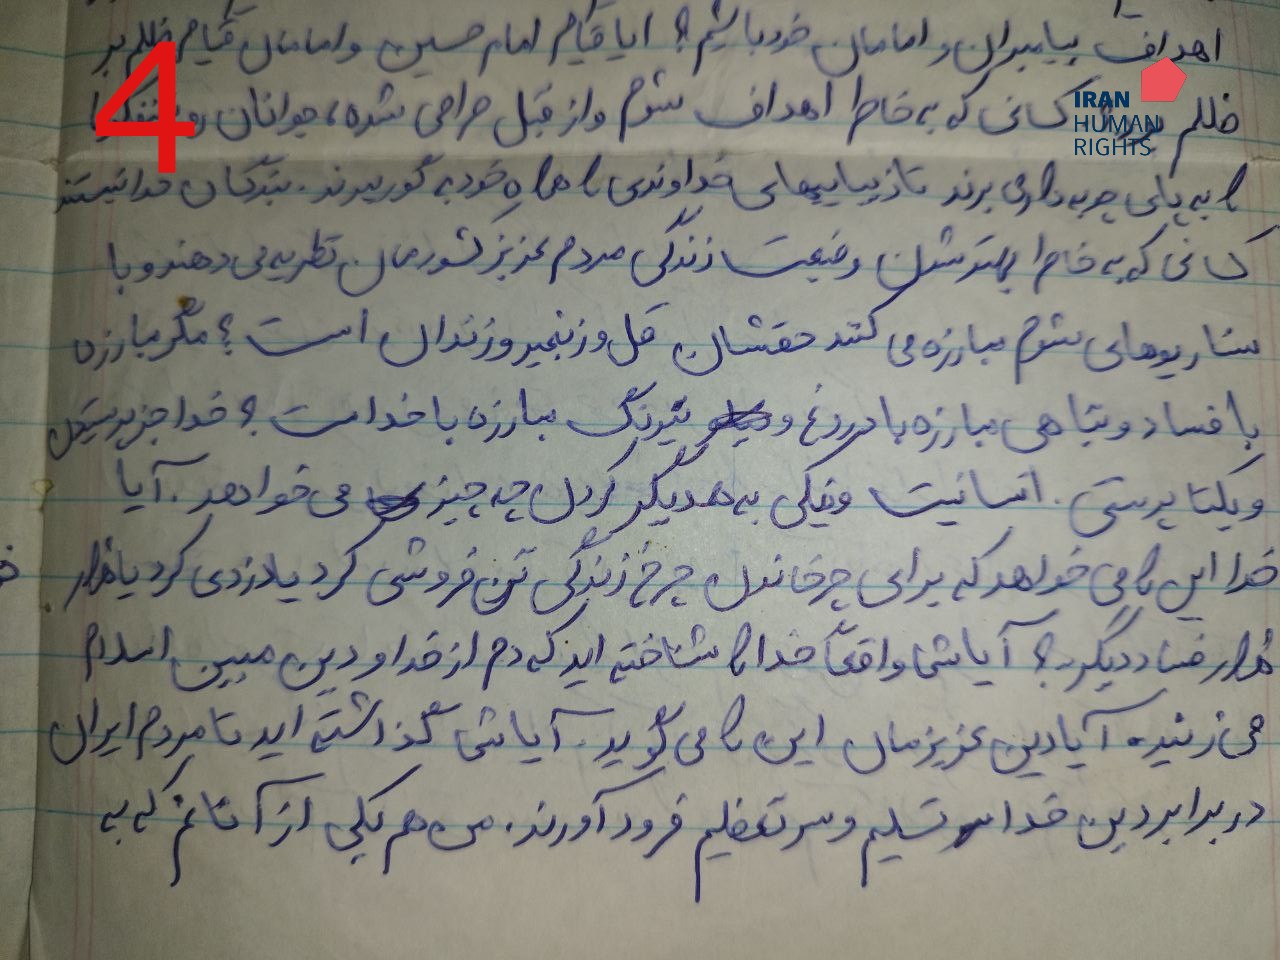 4
IRAN
HUMAN
RIGHTS
اهداف پیامبران و امامان خود باشیم؟ ایا قیام امام حسین و امامان قیام ظلم بر
ظلم بود؟ کسانی که به خاطر اهداف شوم و از قبل طراحی شده، جوانان
را به پای چوبه دار می برند تا زیباییهای خداوندی را همراه خود به گور ببرند. بندگان خدا نیستند
کسانی که به خاطر بهتر شدن وضیعت زندگی مردم عزیز کشورمان نظریه می دهند و با
سناریوهای شوم مبارزه می کنند حقشان غل و زنجیر و زندان است؟ مگر مبارزه
با فساد و تباهی مبارزه با دروغ و نیرنگ مبارزه با خداست؟ خدا جز پرستیدن
و یکتا پرستی. انسانیت و نیکی به همدیگر کردن چه چیز می خواهد. آیا
خدا این را می خواهد که برای چرخاندن چرخ زندگی تن فروشی کرد یا دزدی کرد یا هزار
هزار فساد دیگر.؟ آیا شما واقعاً خدا را شناخته اید که دم از خدا و دین مبین اسلام
می زنید. آیا دین عزیزمان این را می گوید. آیا شما گذاشته اید تا مردم ایران
در برابر دین خدا سر تسلیم و سر تعظیم فرود آورند. من هم یکی از آنانم که به